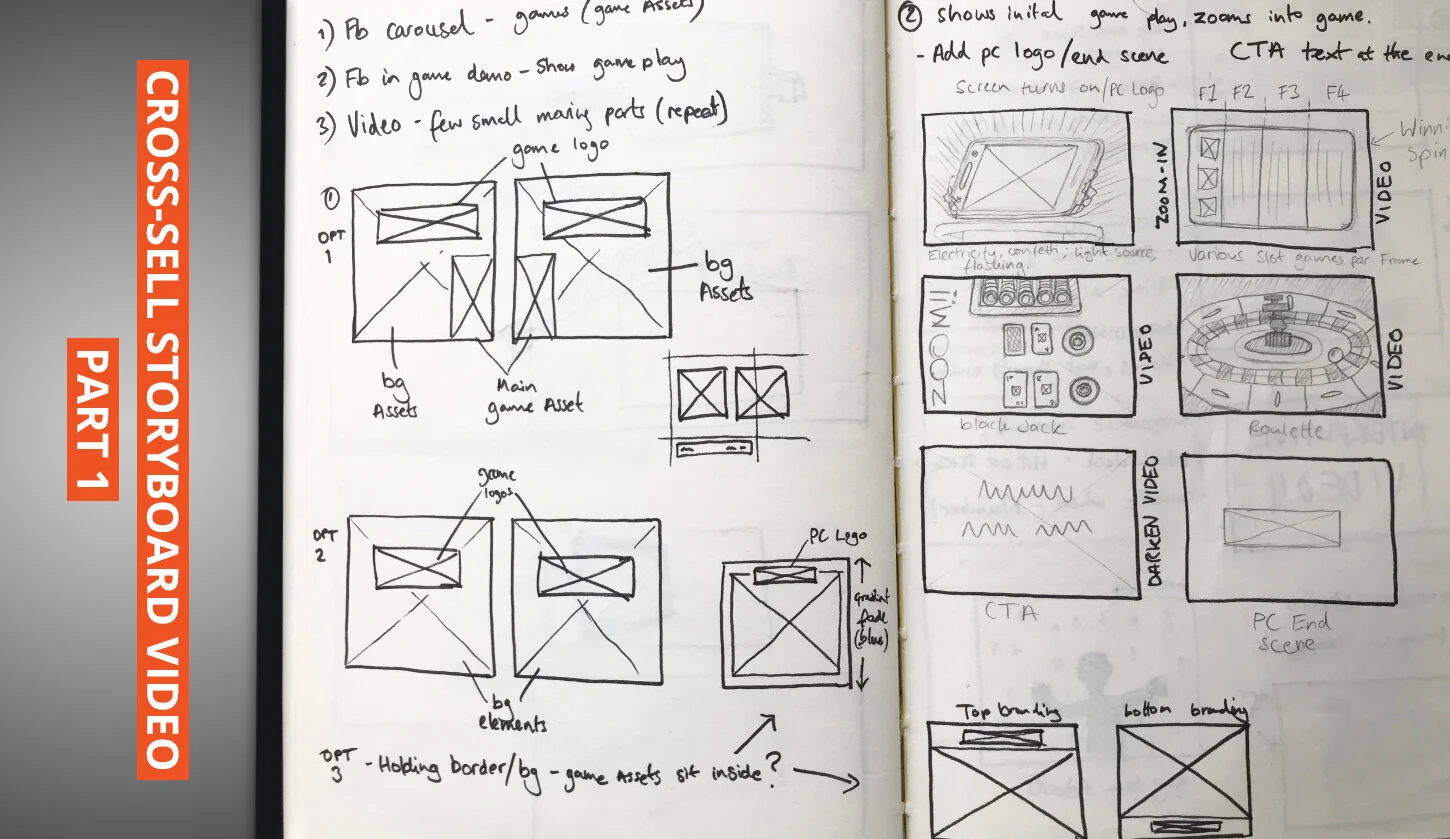 CROSS-SELL STORYBOARD VIDEO
PART 1
1) Fb carousel - games (game Assets)
2) Fb in game demo - Show game play
3) Video - few small moving parts (repeat)
game logo
1
OPT
1
bg
Assets
bg
Assets
Main
game Asset
game
logos
OPT
2
PC Logo
Gradient
fade
(blue)
bg
elements
OPT
3
- Holding border/bg - game Assets sit inside?
2 shows inital game play, zooms into game.
- Add pc logo/end scene
CTA text at the
Screen turns on/PC Logo
F1 F2 F3 F4
ZOOM-IN
VIDEO
Spin
Electricity, confetti, light source,
flashing.
Various slot games per Frame
ZOOM!!
VIDEO
VIDEO
black Jack
Roulette
DARKEN VIDEO
CTA
PC End
scene
Top branding
bottom branding